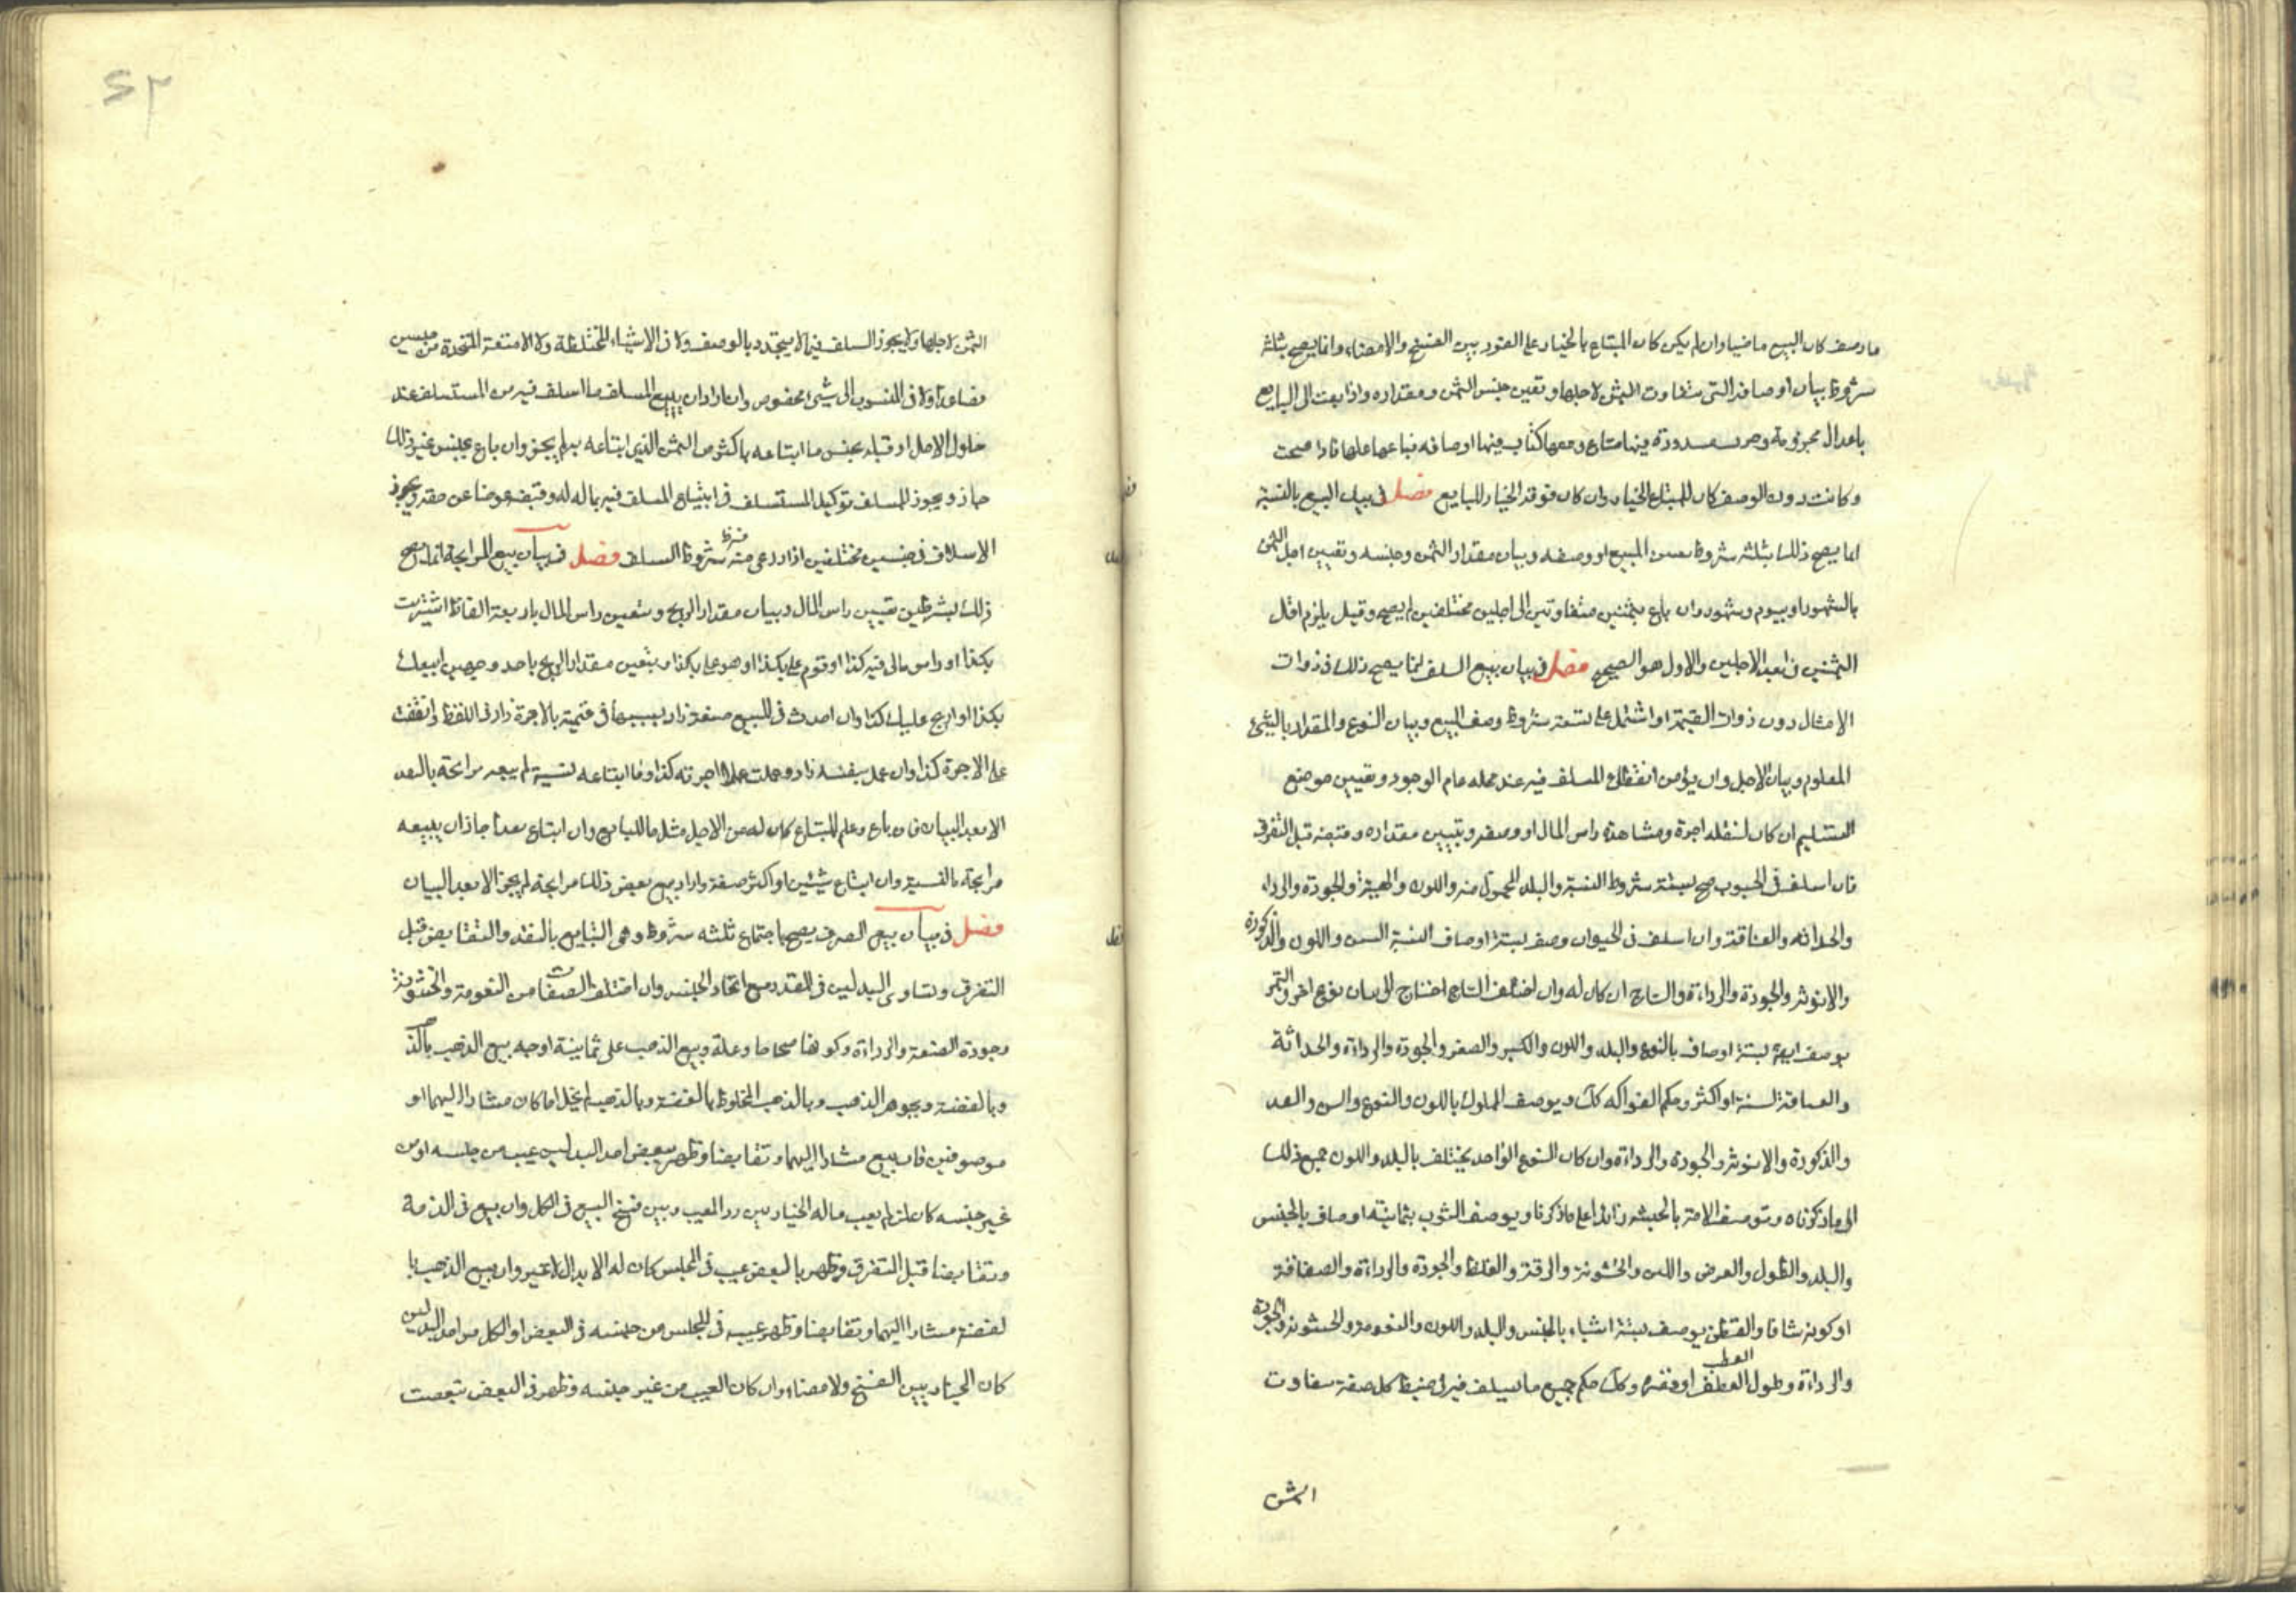 ما وصف كان البيع ماضيا وان لم يكن كان المبتاع بالخيار على الفور بين الفسخ والامضاء وانما يصح بثلثة
شروط بيان اوصافه التى يتفاوت الثمن لاجلها وتعين جنس الثمن ومقداره واذا بعت الى البايع
باعدال محزومة وجرب مسدودة فيها متاع ومعها كتاب فيها اوصافه فباعها عليها فاذا صحت
وكانت دون الوصف كان للمبتاع الخيار وان كان فوقه الخيار للبايع فصل فى بيان البيع بالنسية
انما يصح ذلك بثلثة شروط تعيين المبيع او وصفه وبيان مقدار الثمن وجنسه وتعيين اجل الثمن
بالشهور او بيوم وشهور وان باع بثمنين متفاوتين الى اجلين مختلفين لم يصح وقيل يلزم اقل
الثمنين فى ابعد الاجلين والاول هو الصحيح فصل فى بيان بيع السلف انما يصح ذلك فى ذوات
الامثال دون ذوات القيمة او اشتمل على تسعة شروط وصف المبيع وبيان النوع والمقدار بالشئ
المعلوم وبيان الاجل وان يؤمن انقطاع المسلف فيه عند محله عام الوجود وتعيين موضع
التسليم ان كان لنقله اجرة ومشاهدة راس المال او وصفه وتبيين مقداره وقبضه قبل التفرق
فان اسلف فى الحبوب صح بستة شروط النسبة والبلد المحمول منه واللون والجودة والرداءة
والحداثة والعتاقة وان اسلف فى الحيوان وصف بستة اوصاف النسبة السن واللون والذكورة
والانوثة والجودة والرداءة والنتاج ان كان له وان اختلف النتاج احتاج الى بيان نوع اخر والتمر
يوصف ايضا بستة اوصاف بالنوع والبلد واللون والكبر والصغر والجودة والرداءة والحداثة
والعتاقة لسنة او اكثر وحكم الفواكه كك ويوصف المملوك باللون والنوع والسن والقد
والذكورة والانوثة والجودة والرداءة وان كان النوع الواحد يختلف بالبلد واللون جمع ذلك
الى ما ذكرناه وتوصف الامة بالجنسه زائدا على ما ذكرنا ويوصف الثوب بثمانية اوصاف بالجنس
والبلد والطول والعرض واللين والخشونة والرقة والغلظ والجودة والرداءة والصفاقة
او كونه شافا والقطن يوصف بستة اشياء بالجنس والبلد واللون والنعومة والخشونة والجودة
والرداءة وطول العطب او قصره وكك حكم جميع ما يسلف فيه فى ضبط كل صفة يتفاوت
الثمن
الثمن لاجلها ولا يجوز السلف فيما لا يتحدد بالوصف ولا فى الاشياء المختلطة ولا الامتعة المتخذة من جنسين
فصاعدا ولا فى المنسوب الى شئ مخصوص وان اراد ان يبيع المسلف ما اسلف فيه من المستسلف عند
حلول الاجل او قبله بجنس ما ابتاعه باكثر من الثمن الذى ابتاعه به لم يجز وان باع بجنس غير ذلك
جاز ويجوز للمسلف توكيل المستسلف فى ابتياع المسلف فيه بماله له وقبضه عوضا عن حقه ويجوز
الاسلاف فى جنسين مختلفين اذا روعى فيه شروط السلف فصل فى بيان بيع المرابحة انما يصح
ذلك بشرطين تعيين راس المال وبيان مقدار الربح ويتعين راس المال باربعة الفاظ اشتريت
بكذا او راس مالى فيه كذا او تقوم على بكذا او هو على بكذا ويتعين مقدار الربح باحد وجهين ابيعك
بكذا او اربح عليك كذا وان احدث فى المبيع صنعة زاد بسببها فى قيمته بالاجرة زاد فى اللفظ وانفقت
على الاجرة كذا وان عمل بنفسه زاد وعملت عملا اجرته كذا وما ابتاعه نسية لم يبعه مرابحة بالنقد
الا بعد البيان فان باع وعلم المبتاع كان له من الاجل مثل ما للبايع وان ابتاع نقدا جاز ان يبيعه
مرابحة بالنسية وان ابتاع شيئين او اكثر صفقة واراد بيع بعض ذلك مرابحة لم يجز الا بعد البيان
فصل فى بيان بيع الصرف يصح باجتماع ثلثه شروط وهى التبايع بالنقد والتقابض قبل
التفرق وتساوى البدلين فى القدر مع اتحاد الجنس وان اختلف الصفات من النعومة والخشونة
وجودة الصنعة والرداءة وكونها صحاحا وغلة وبيع الذهب على ثمانية اوجه بيع الذهب بالذ
وبالفضة وبجوهر الذهب وبالذهب المخلوط بالفضة وبالذهب لم يخل اما كان مشارا اليهما او
موصوفين فان بيع مشارا اليهما وتقابضا وظهر ببعض احد البدلين عيب من جنسه او من
غير جنسه كان لمن لم يعب ماله الخيار بين رد المعيب وبين فسخ البيع فى الكل وان بيع فى الذمة
وتقابضا قبل التفرق وظهر بالبعض عيب فى المجلس كان له الابدال لا غير وان بيع الذهب با
لفضة مشارا اليهما وتقابضا وظهر عيبه فى المجلس من جنسه فى البعض او الكل من احد البدلين
كان الخيار بين الفسخ والامضاء وان كان العيب من غير جنسه وظهر فى البعض تبعضت